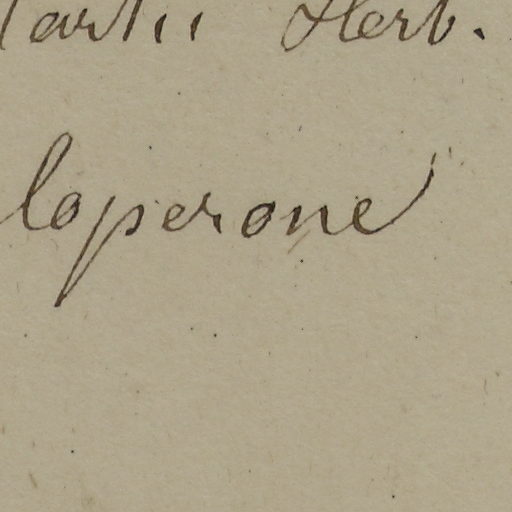 artii Herb.
loperone